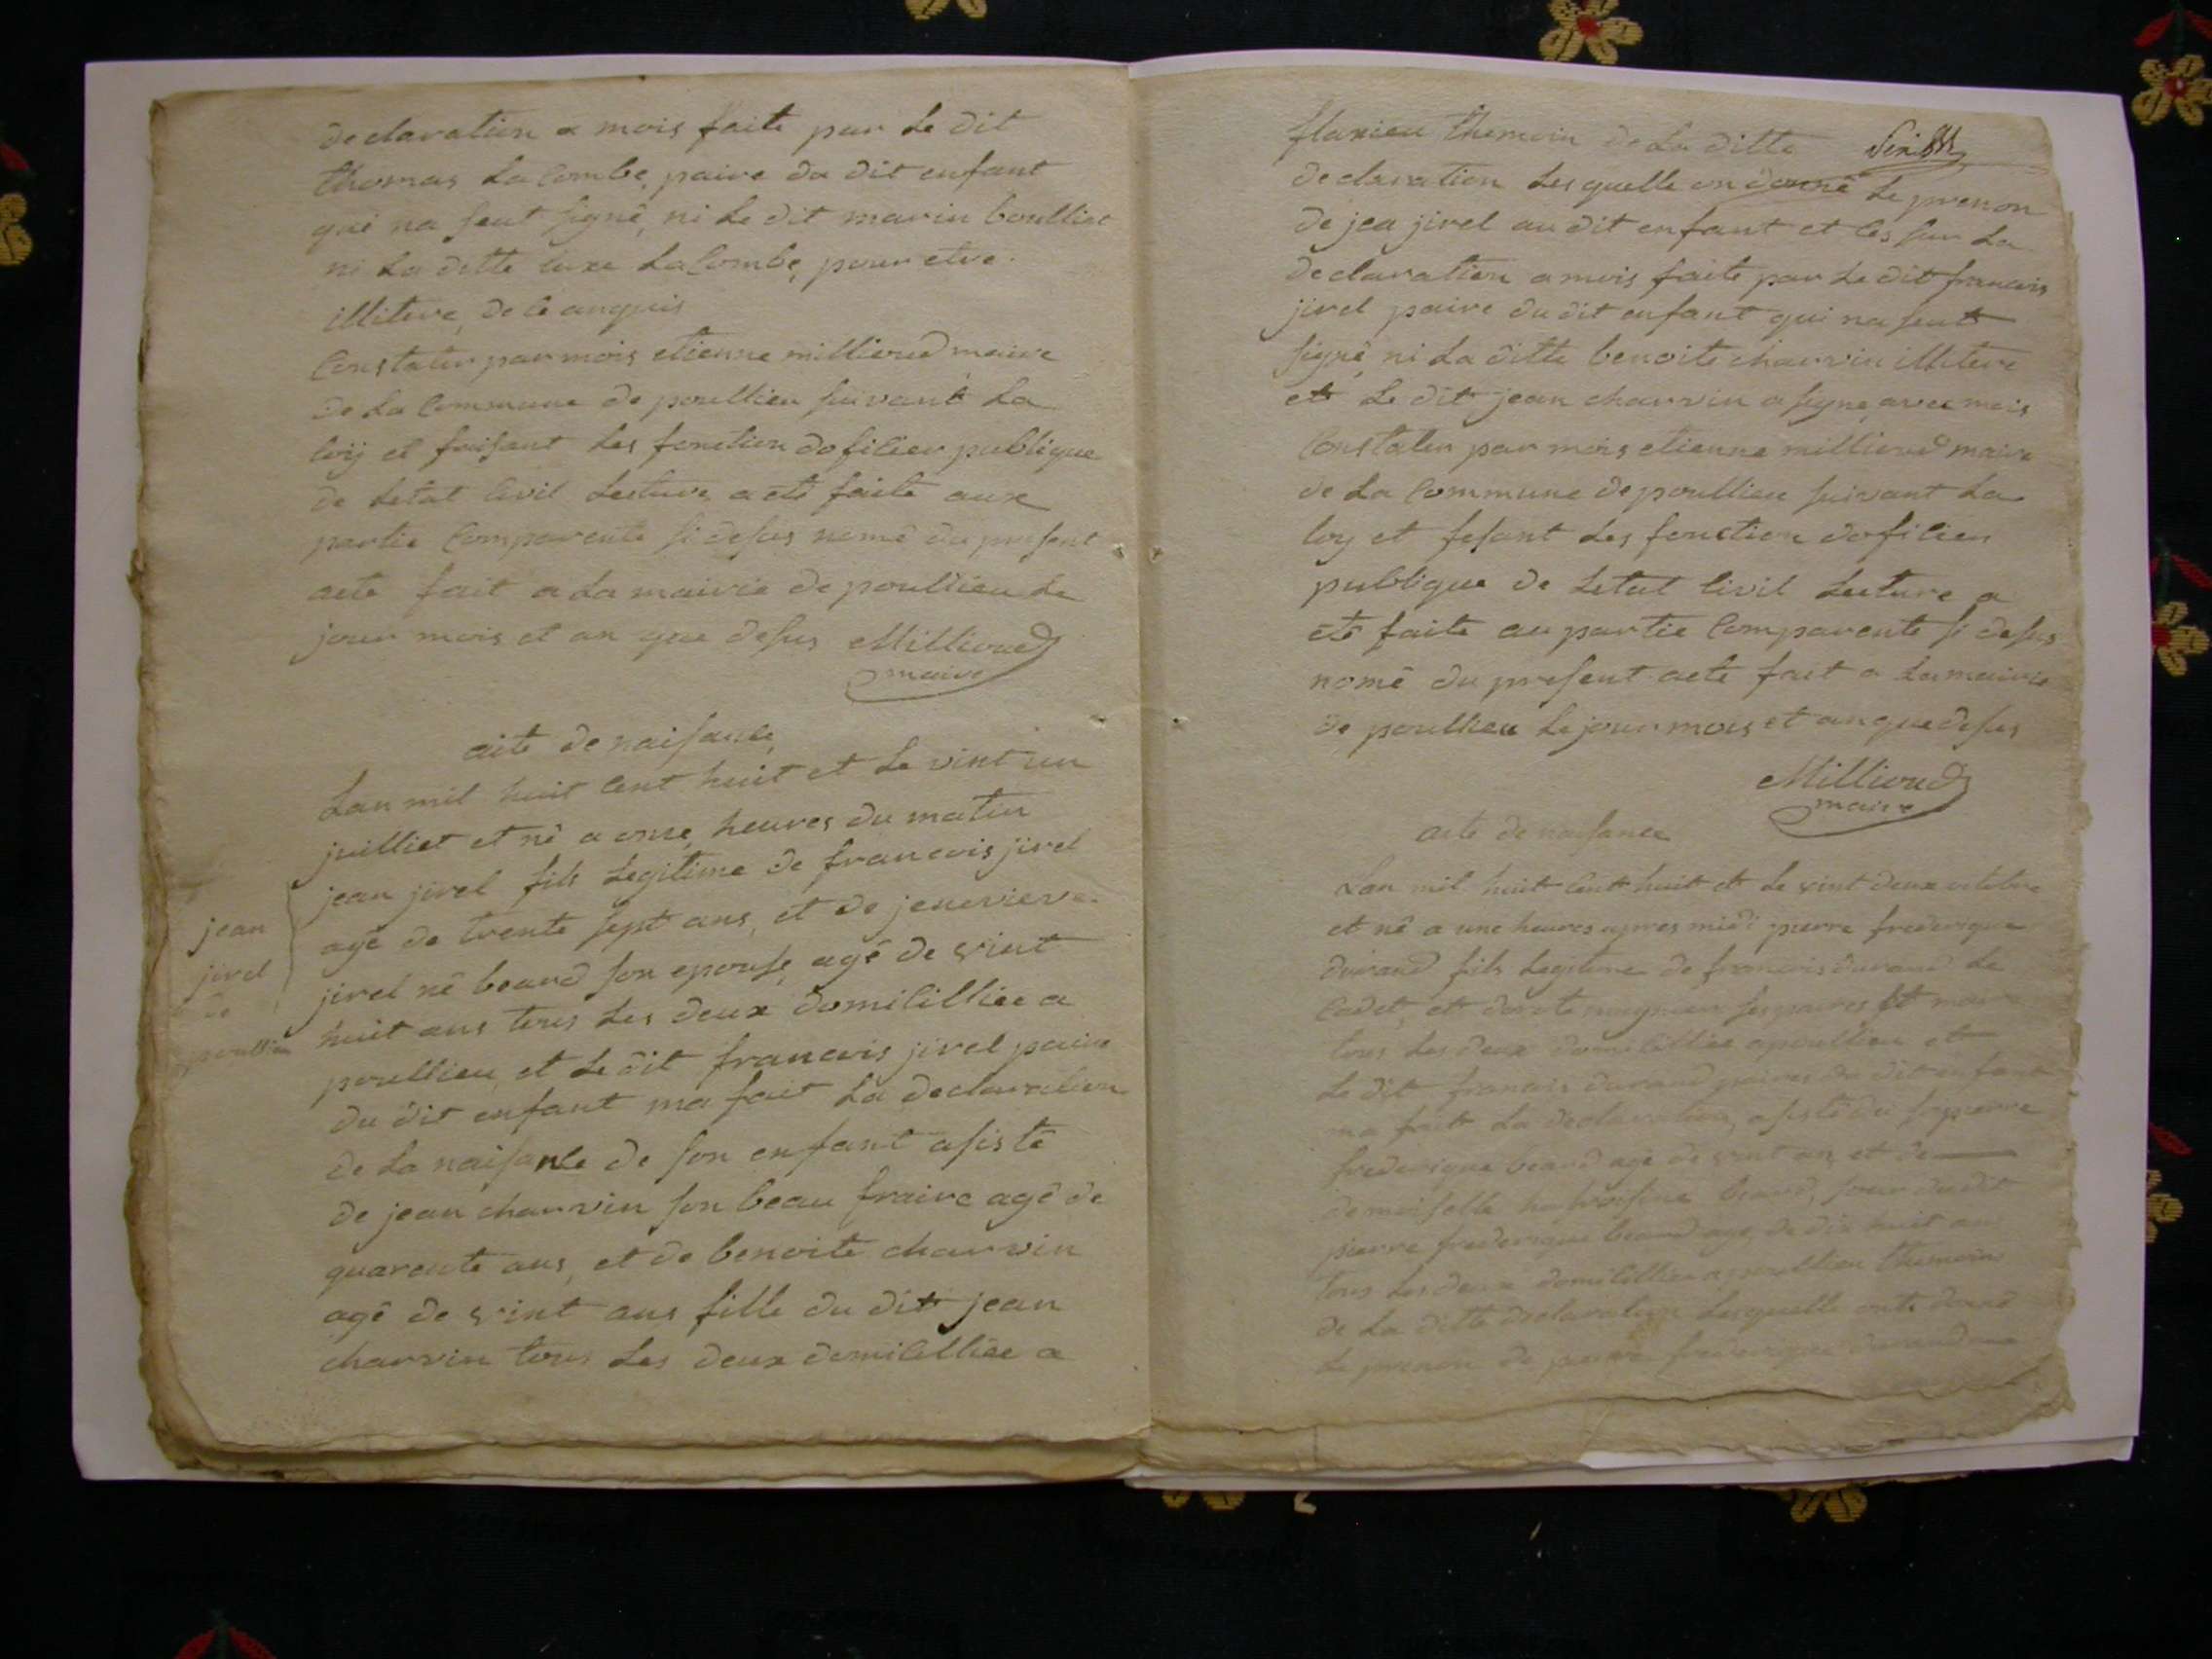 declaration a mois faite par le dit
thomas La Combe, paire du dit enfant
qui na seut signê, ni le dit marin boulliat
ni La ditte LaCombe, pour etre
illitere, de ce anquis
Constater par mois etienne millioud maire
de La Commune de poullieu suivant La
loÿ et faisant Les fonction dofilier publique
de Letat Civil Lecture a etê faite aux
partie Comparente si desus nomê du present
acte fait a La mairie de poullieu Le
jour mois et an que desus Millioud
maire
aite de naisance
Lan mil huit Cent huit et Le vint un
juilliet et nê a onse heures du matin
jean jirel fils Legitime de francois jirel
agê de trente sept ans, et de jenevieve
jirel nê beard son epouse, agê de vint
huit ans tous Les deux domicilliee a
poullieu, et Le dit francois jirel paire
du dit enfant ma fait La declaration
de La naisance de son enfant asistê
de jean charvin son beau fraire agê de
quarente ans, et de benoite charvin
agê de vint ans fille du dit jean
charvin tous Les deux domicilliee a
jean
jirel
de
poullieu
flaxieu themoin de La ditte
declaration Lesquelle on donnê Le prenon
de jea jirel au dit enfant et Ces sur La
declaration a mois faite par Le dit francois
jirel paire du dit enfant qui na seut
signê, ni La ditte benoite charvin illitere
et Le dit jean charvin a signe avec mois
Constater par mois etienne millioud maire
de La Commune de poullieu suivant La
loy et fesant Les fonction dofilier
publique de Letat Civil Lecture a
etê faite au partie Comparente si desus
nomê du present acte fait a La mairie
de poullieu Le jour mois et an que desus
Millioud
maire
acte de naisance
Lan mil huit Cent huit et Le vint deux octobre
et nê a une heures apres midi pierre frederique
durand fils Legitime de francois durand Le
Cadet, et paires et maire
tous Les deux domicilliee a poullieu et
Le dit francois durand paires du dit enfant
ma fait La declaration, asistê du pierre
frederique beard agê de vint an et de
demoiselle beard, soeur du dit
pierre frederique beard agê de dix huit an
tous Les deux domicilliee a poullieu themoin
de La ditte declaration Lesquelle donnê
Le prenon de pierre frederique durand